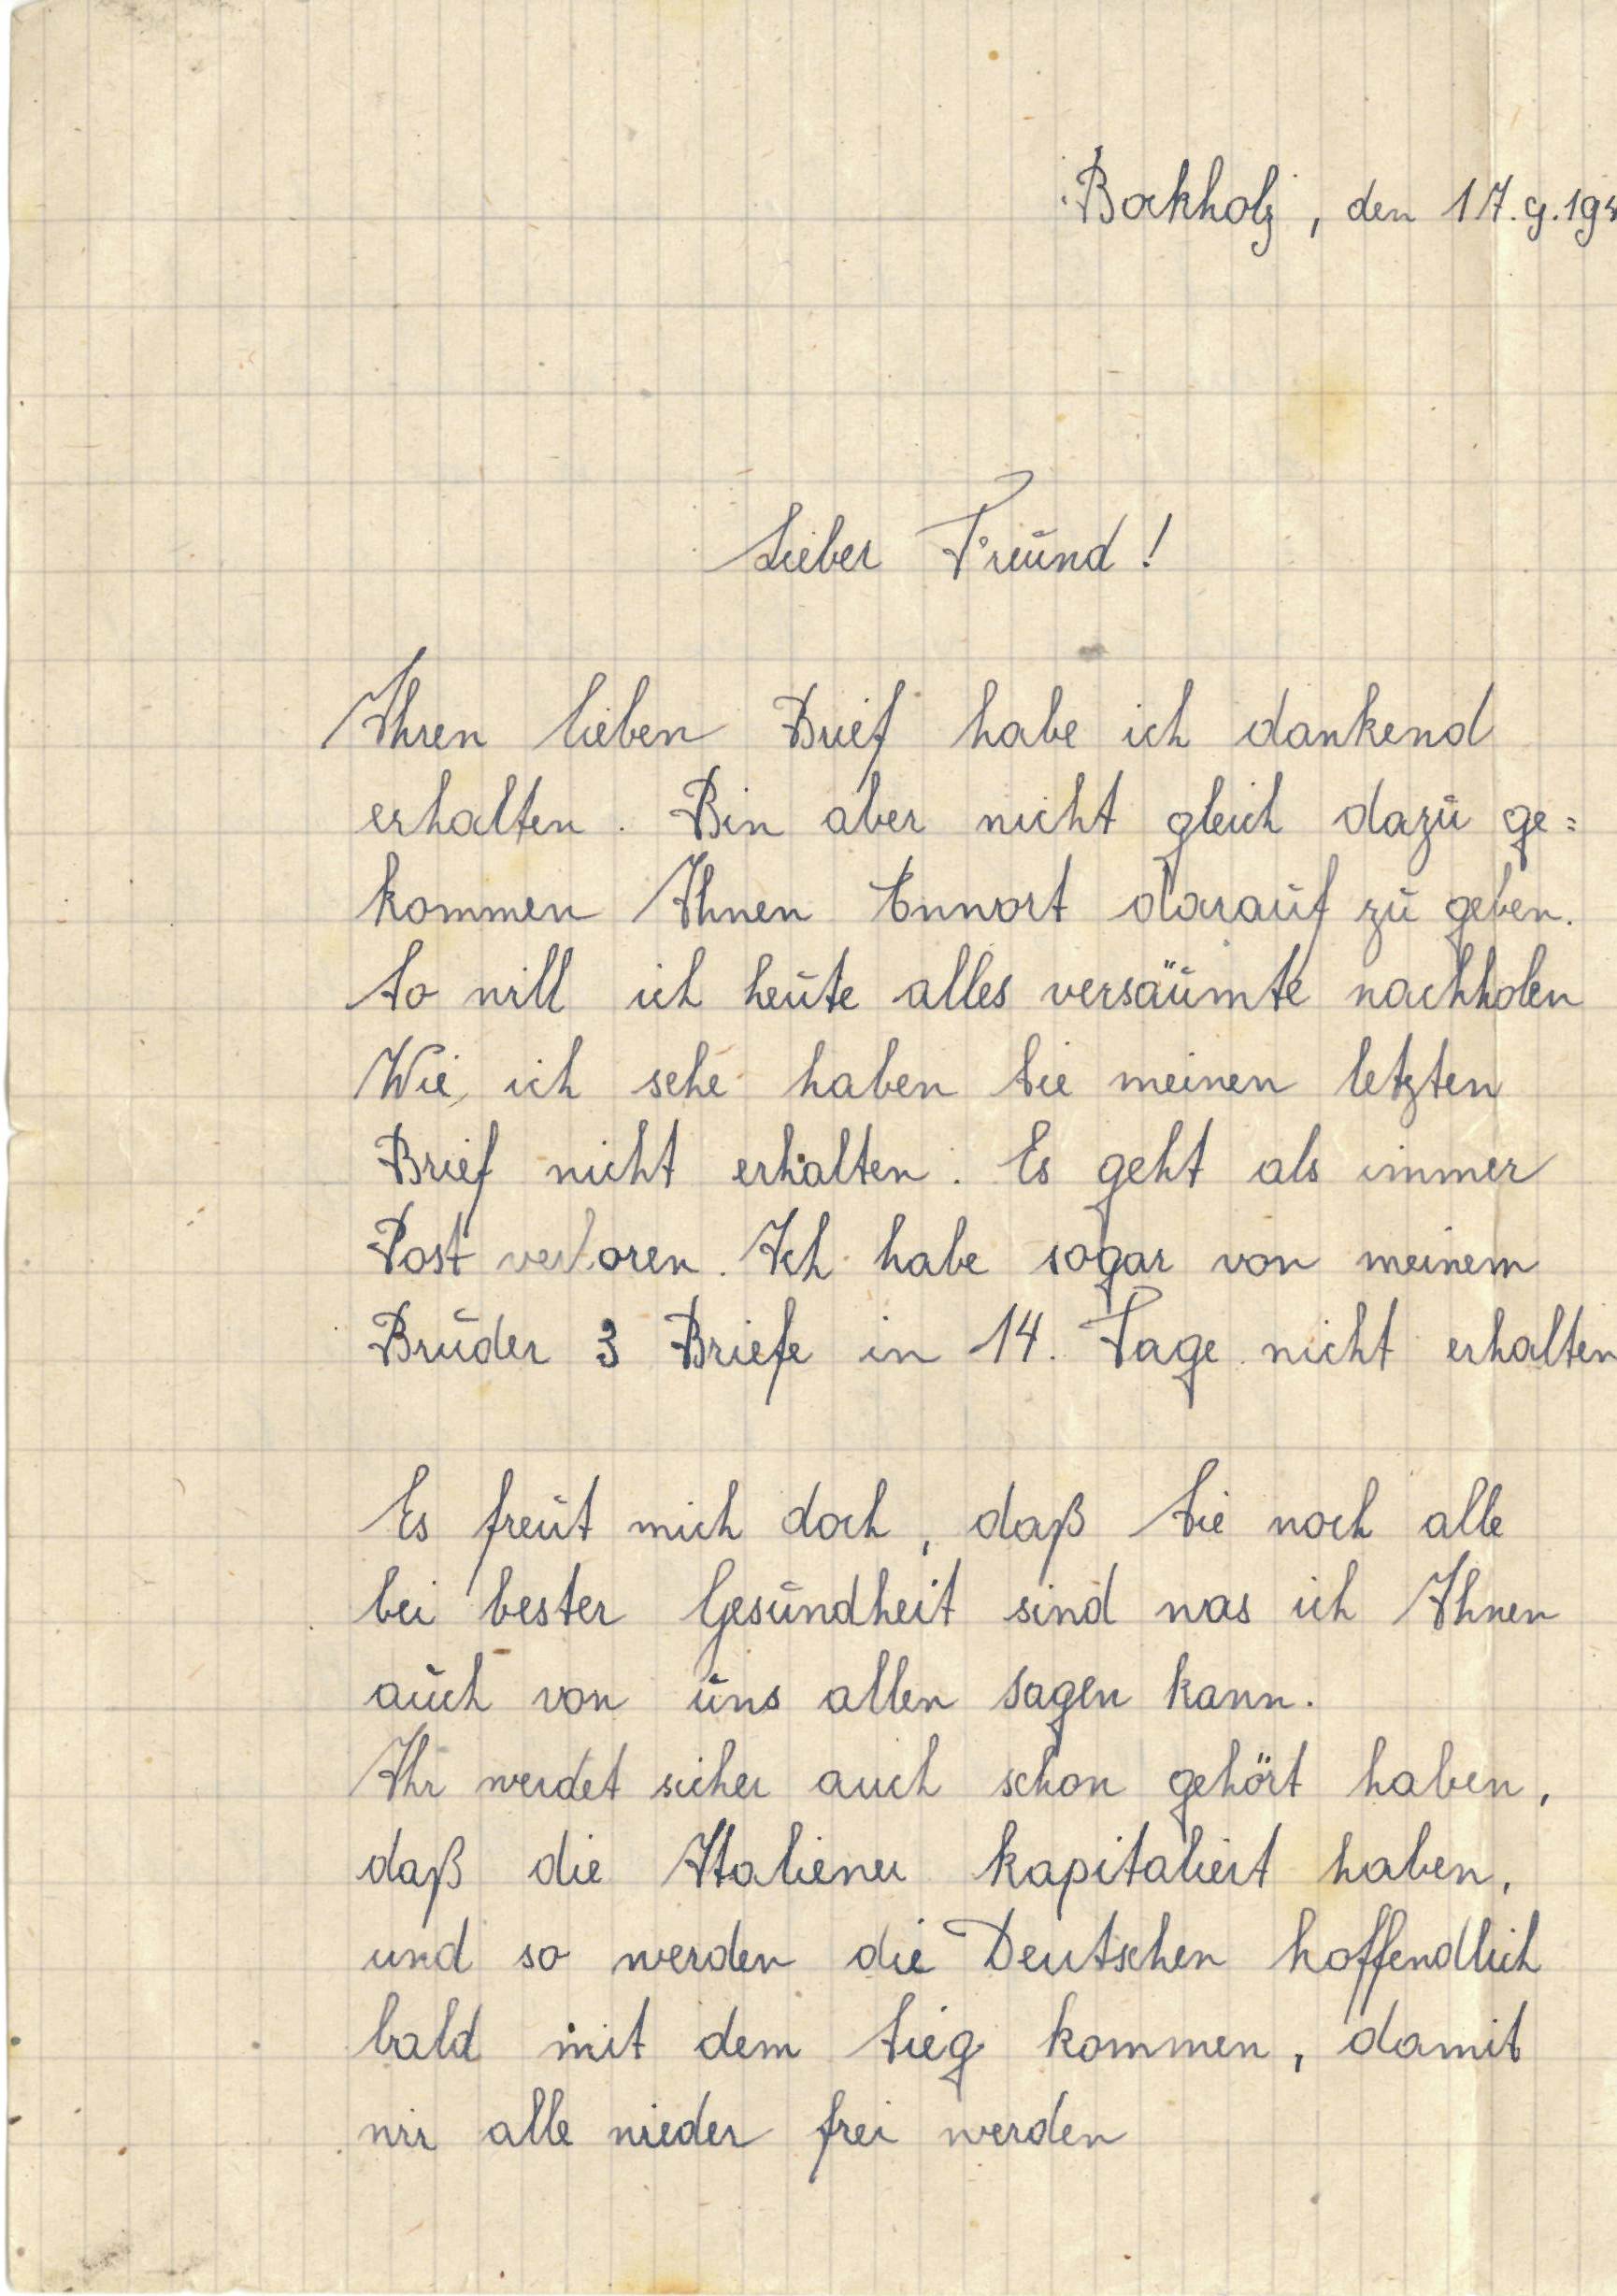 Bockholz, den 17.9.194
Lieber Freund!
Ihren lieben Brief habe ich dankend
erhalten. Bin aber nicht gleich dazu ge=
kommen Ihnen darauf zu geben.
So will ich heute alles versäumte nachholen
Wie, ich sehe haben Sie meinen letzten
Brief nicht erhalten. Es geht als immer
Post verloren. Ich habe sogar von meinem
Bruder 3 Briefe in 14. Tage nicht erhalten
Es freut mich doch, daß Sie noch alle
bei bester Gesundheit sind was ich Ihnen
auch von uns allen sagen kann.
Ihr werdet sicher auch schon gehört haben,
daß die Italiener kapitaliert haben,
und so werden die Deutschen hoffendlich
bald mit dem Sieg kommen, damit
wir alle wieder frei werden